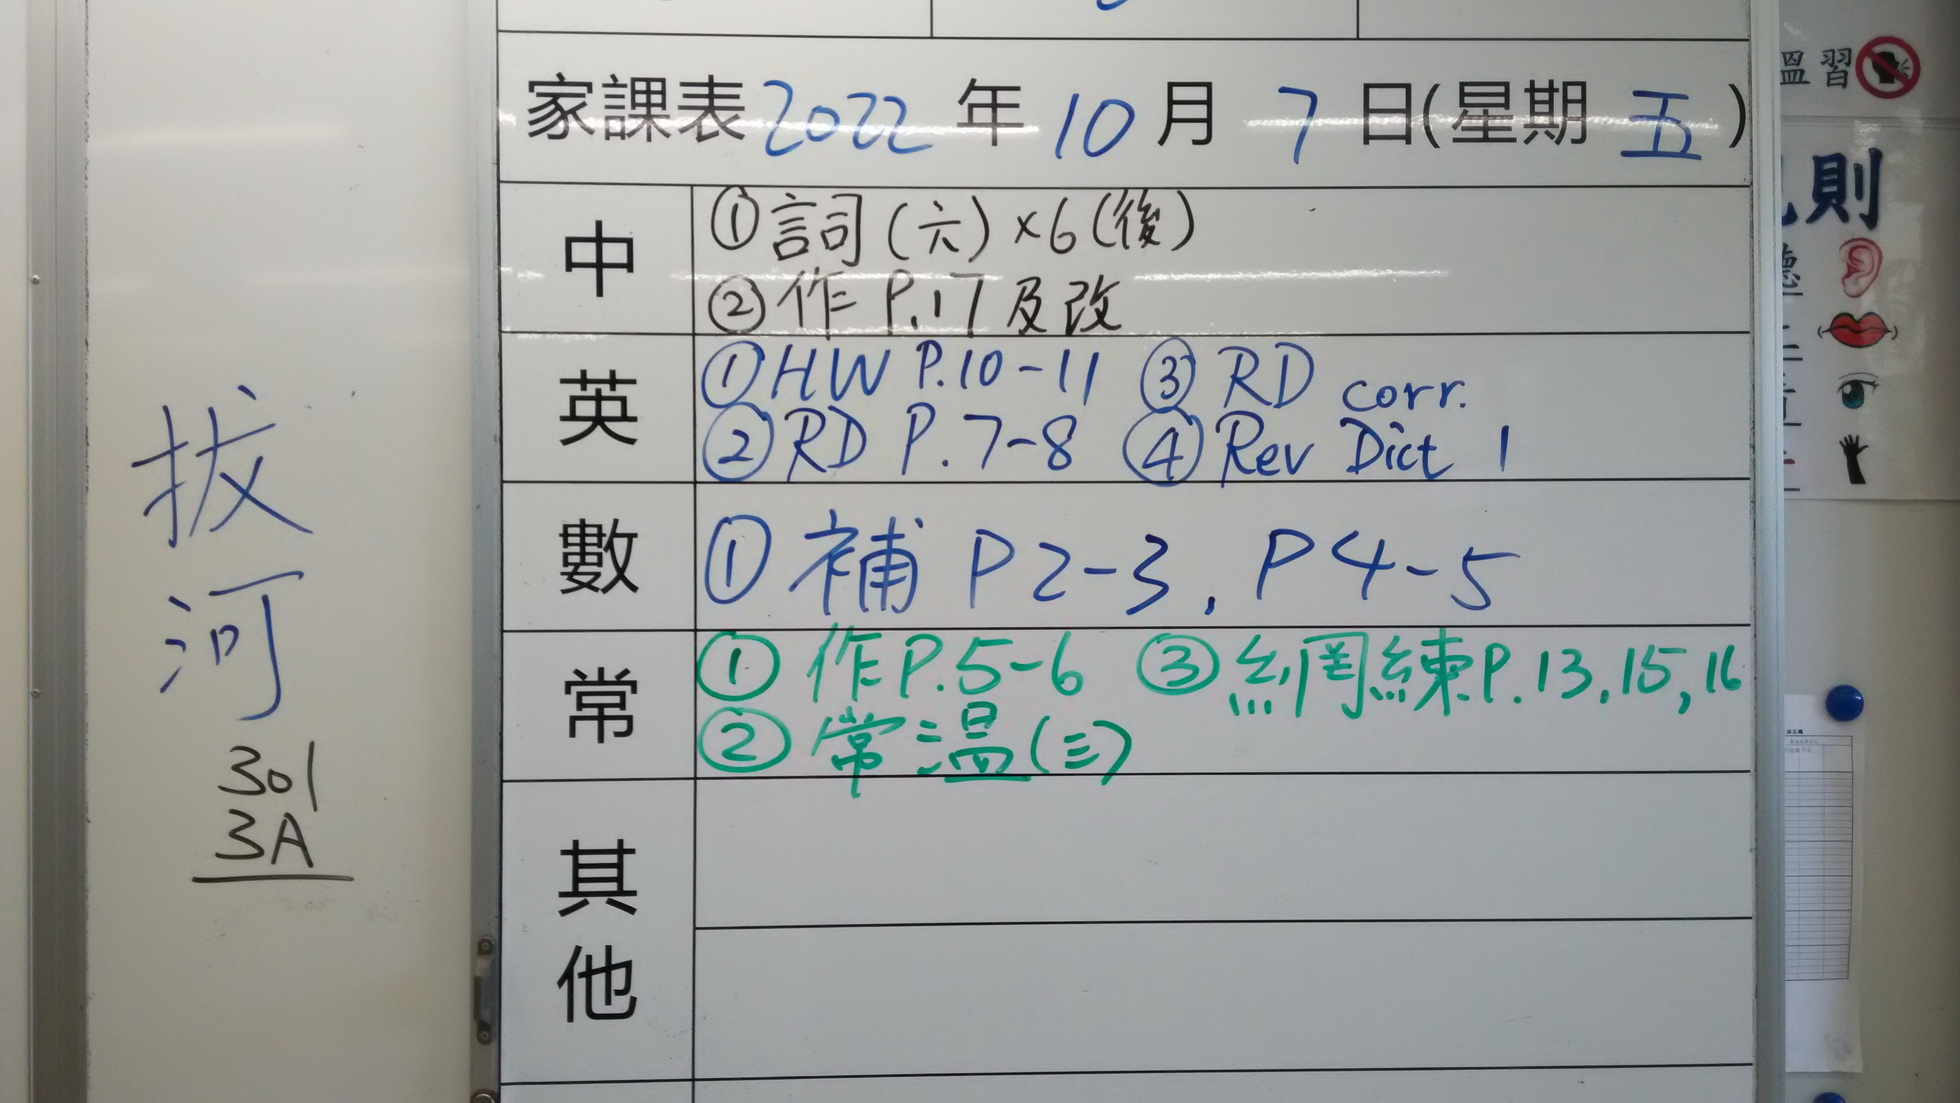 拔
河
301
3A
家課表 2022 年 10 月 7 日(星期 五)
中
①詞(六)×6(後)
②作 P.17 及改
英
①HW P.10-11 ③ RD corr.
②RD P.7-8 ④ Rev Dict 1
數
① 補 P2-3, P4-5
常
① 作P.5-6 ③ 網練P.13,15,16
② 常溫(三)
其
他
溫習
則